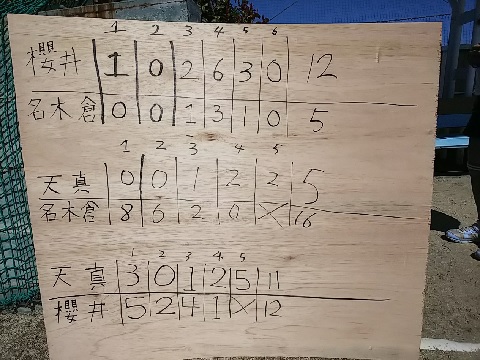 1 2 3 4 5 6
櫻井 1 0 2 6 3 0 12
名木倉 0 0 1 3 1 0 5
1 2 3 4 5
天真 0 0 1 2 2 5
名木倉 8 6 2 0 X 16
1 2 3 4 5
天真 3 0 1 2 5 11
櫻井 5 2 4 1 X 12